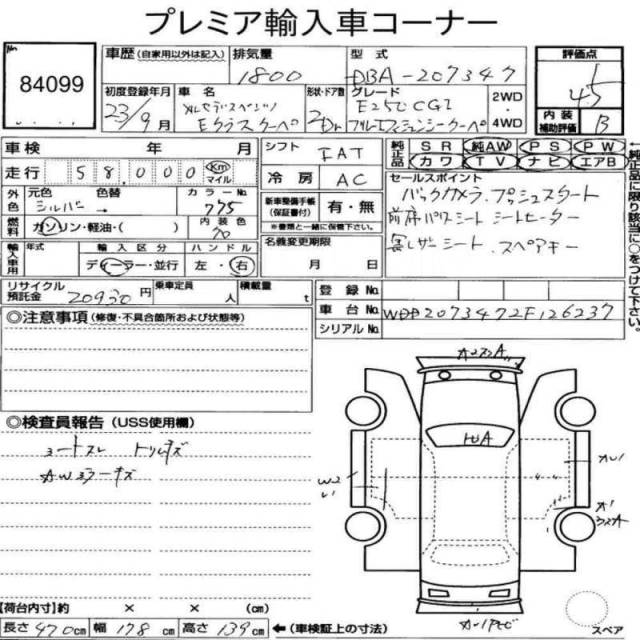 プレミア輸入車コーナー
No
84099
車歴 (自家用以外は記入)
排気量
1800
型式
DBA-207347
評価点
4.5
初度登録年月
23/9月
車名
メルセデスベンツ
Eクラスクーペ
形状・ドア数
2Dr
グレード
E250CGI
2WD
4WD
内装
補助評価
B
車検 年 月
シフト
FAT
純正品
SR 純AW PS PW
カワ TV ナビ エアB
←純正品に限り該当するものに○をつけて下さい。
走行 58,000 Km マイル
冷房
AC
セールスポイント
バックカメラ.プッシュスタート
前席パワーシート シートヒーター
黒レザーシート.スペアキー
外色
元色 色替 カラーNo.
シルバー → 775
新車整備手帳
(保証書付)
有・無
※書類と一緒に保管下さい。
燃料
ガソリン・軽油・( )
内装色
名義変更期限
月 日
輸入車用
年式 輸入区分 ハンドル
ディーラー・並行 左・右
リサイクル
預託金
20930円
乗車定員
人
積載量
t
登録No.
車台No.
WDD2073472F126237
シリアルNo.
◎注意事項 (修復・不具合箇所および状態等)
◎検査員報告 (USS使用欄)
シートスレ トリムキズ
AWコーナーキズ
トUA
AU1
【荷台内寸】約 × × (cm)
長さ 470cm 幅 178cm 高さ 139cm ←(車検証上の寸法)
スペア